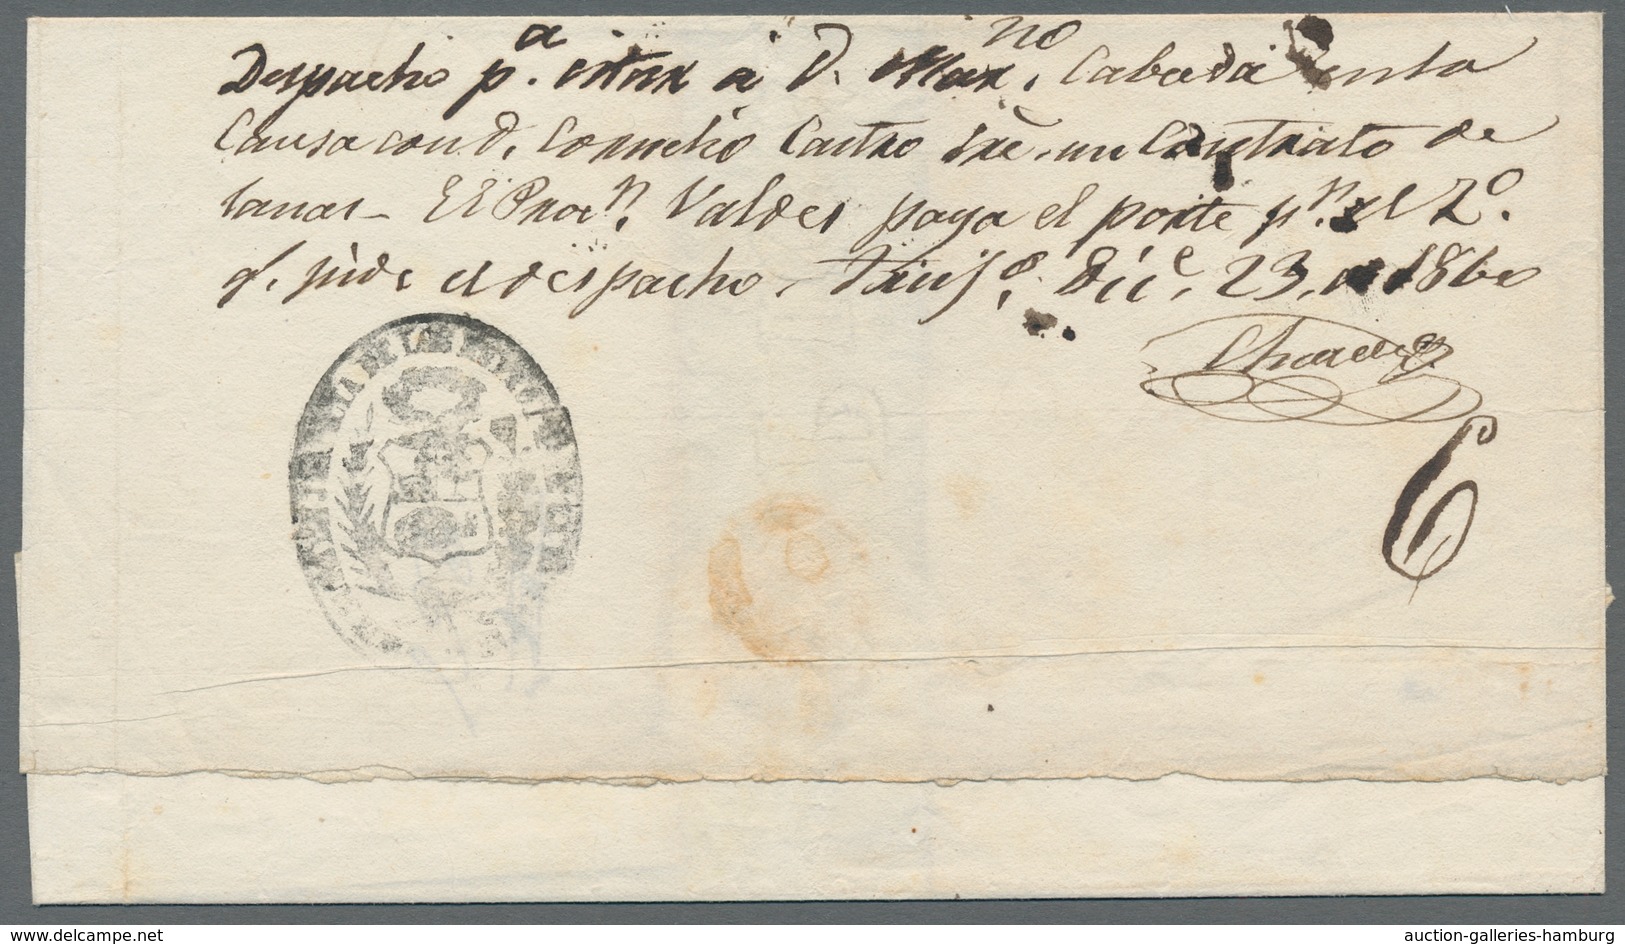 Despacho pa. citar a D. Marno. Cabada en la
Causa con D. Cornelio Castro sre. un Contrato de
lanas - El Procn. Valdes paga el porte pr. el 2o.
q. pide el despacho. Trujo. Dice. 23, de 1860
6
www.delcampe.net
auction-galleries-hamburg